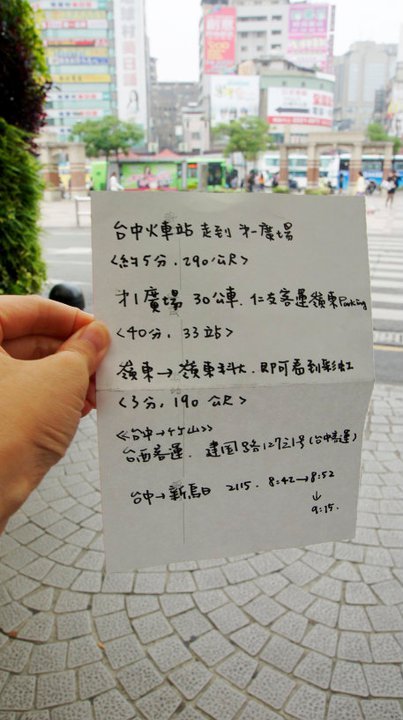 台中火車站 走到 第一廣場
<約5分，290公尺>
第1廣場 30公車，仁友客運嶺東Parking
<40分，33站>
嶺東→嶺東科大，即可看到彩虹
<3分，190公尺>
<<台中→竹山>>
台西客運，建国路127之1号(台中客運)
台中→新烏日 2115. 8:42→8:52
↓
9:15.